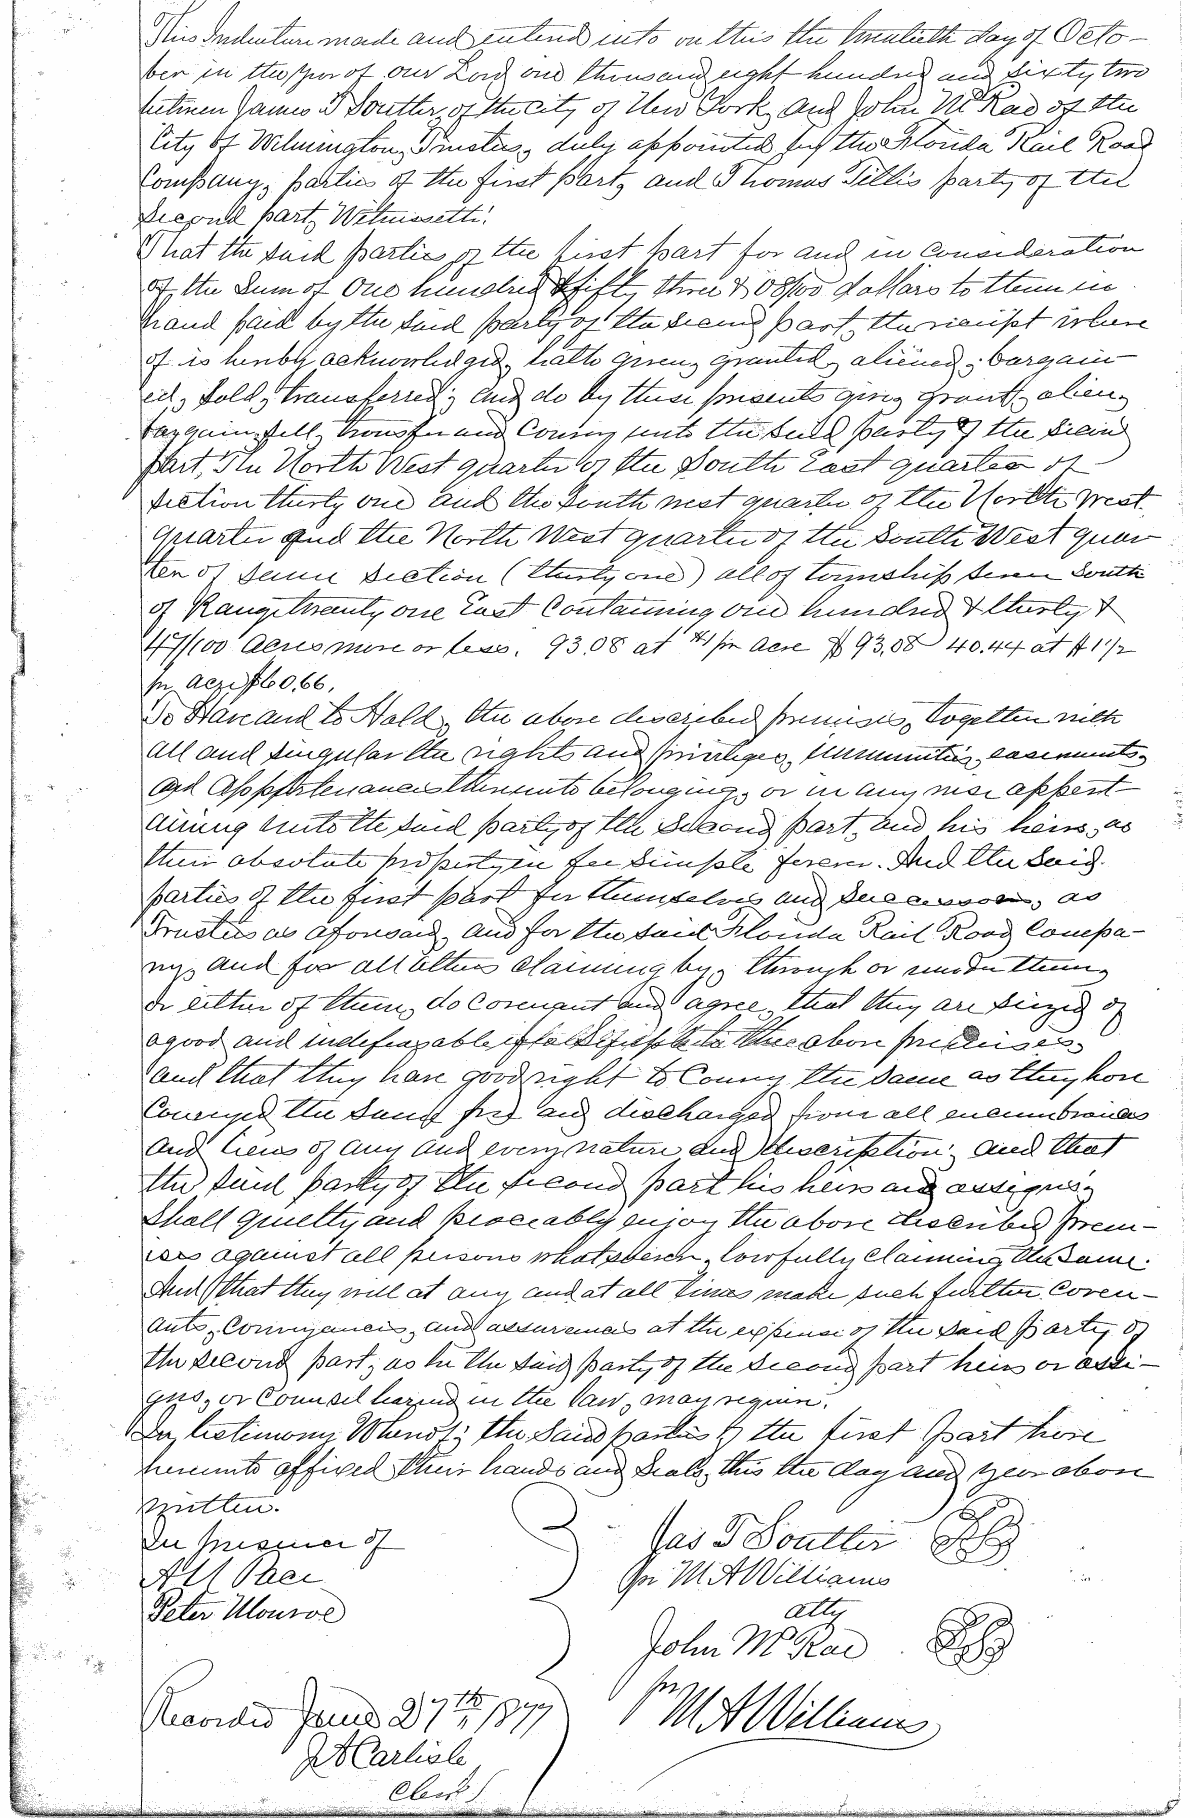 This Indenture made and entered into on this the twentieth day of Octo-
ber in the year of our Lord one thousand eight hundred and sixty two
between James T Soutter, of the city of New York, and John McRae of the
City of Wilmington, Trustees, duly appointed by the Florida Rail Road
Company, parties of the first part, and Thomas Tillis party of the
Second part, Witnesseth:
That the said parties of the first part for and in consideration
of the sum of One hundred & fifty three & 08/100 dollars to them in
hand paid by the said party of the second part, the receipt where
of is hereby acknowledged, hath given, granted, aliened, bargain
ed, sold, transferred; and do by these presents give, grant, alien,
bargain, sell, transfer and convey unto the said party of the second
part, The North West quarter of the South East quarter of
section thirty one and the South west quarter of the North west
quarter and the North West quarter of the South West quar
ter of same section (thirty one) all of township seven South
of Range twenty one East containing one hundred & thirty &
47/100 acres more or less. 93.08 at $1 pr acre $93.08 40.44 at $1 1/2
pr acre $60.66.
To Have and to Hold, the above described premises, together with
all and singular the rights and privileges, immunities, easements,
and appurtenances thereunto belonging, or in any wise appert
aining unto the said party of the second part, and his heirs, as
their absolute property in fee simple forever. And the said
parties of the first part for themselves and successors, as
Trustees as aforesaid, and for the said Florida Rail Road Compa-
ny, and for all others claiming by, through or under them,
or either of them, do covenant and agree, that they are siezed of
a good and indefeazable the above premises,
and that they have good right to convey the same as they have
conveyed the same free and discharged from all encumbrances
and liens of any and every nature and description; and that
the said party of the second part his heirs and assigns,
shall quietly and peaceably enjoy the above described prem-
ises against all persons whatsoever, lawfully claiming the same.
And that they will at any and at all times make such further coven-
ants, conveyances, and assurances at the expense of the said party of
the second part, as he the said party of the second part heirs or assi-
gns, or counsel learned in the law, may require.
In testimony Whereof; the said parties of the first part have
hereunto affixed their hands and seals, this the day and year above
written.
In presence of
Jas T Soutter
pr M A Williams
Peter Monroe
atty
John McRae
pr M A Williams
Recorded June 27th 1877
Carlisle
Clerk